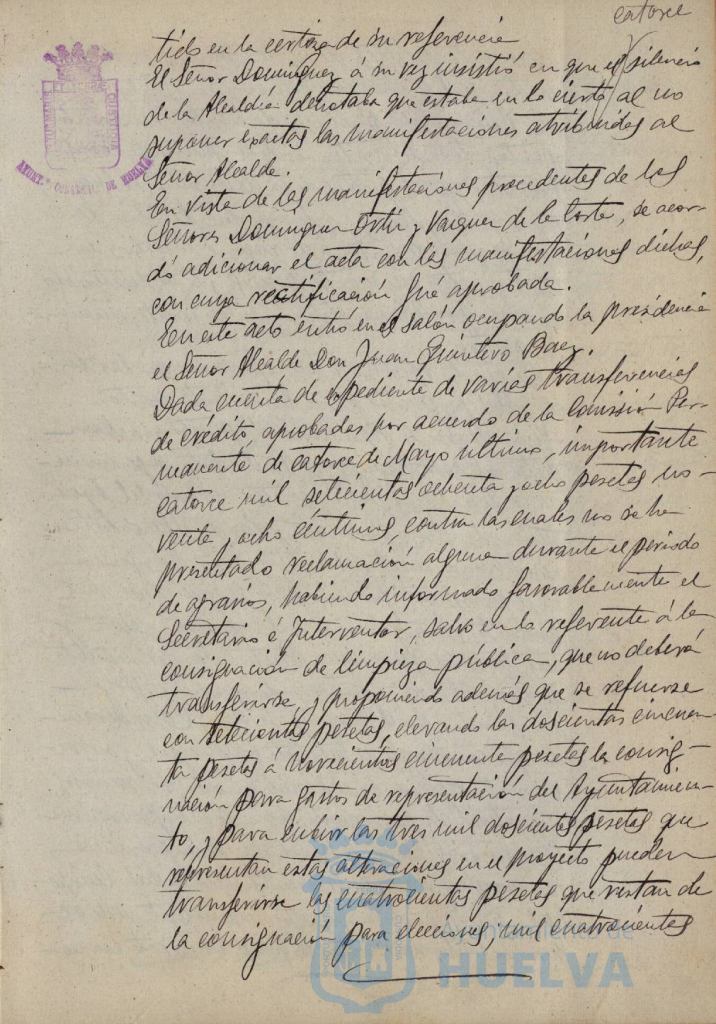 catorce
tido en la certeza de su referencia
El Señor Dominguez á su vez insistió en que el silencio
de la Alcaldía denotaba que estaba en lo cierto al no
suponer exactas las manifestaciones atribuidas al
Señor Alcalde.
En vista de las manifestaciones precedentes de los
Señores Dominguez Ortiz y Vazquez de la Corte, se acor-
dó adicionar el acta con las manifestaciones dichas,
con cuya rectificación fué aprobada.
En este acto entró en el salón ocupando la presidencia
el Señor Alcalde Don Juan Quintero Baez.
Dada cuenta de expediente de varias transferencias
de crédito, aprobadas por acuerdo de la Comisión Per-
manente de catorce de Mayo último, importante
catorce mil setecientas ochenta y ocho pesetas no-
venta y ocho céntimos, contra las cuales no se ha
presentado reclamación alguna durante el periodo
de agravios, habiendo informado favorablemente el
Secretario é Interventor, salvo en lo referente á la
consignación de limpieza pública, que no deberá
transferirse, y proponiendo además que se refuerse
con setecientas pesetas, elevando las doscientas cincuen-
ta pesetas á novecientas cincuenta pesetas la consig-
nación para gastos de representación del Ayuntamien-
to, y para cubrir las tres mil doscientas pesetas que
representan estas alteraciones en el proyecto pueden
transferirse las cuatrocientas pesetas que restan de
la consignación para elecciones, mil cuatrocientas
AYUNT.º DE HUELVA
HUELVA